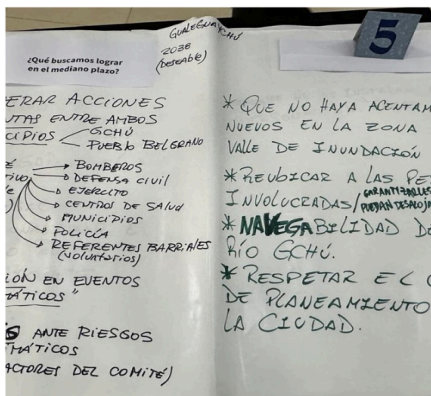 ¿Qué buscamos lograr
en el mediano plazo?
GUALEGUAYCHÚ
2038
(DESEABLE)
5
ERAR ACCIONES
NTAS ENTRE AMBOS
CIPIOS GCHÚ
PUEBLO BELGRANO
BOMBEROS
DEFENSA CIVIL
EJERCITO
CENTROS DE SALUD
MUNICIPIOS
POLICÍA
REFERENTES BARRIALES
(VOLUNTARIOS)
IÓN EN EVENTOS
MÁTICOS"
ANTE RIESGOS
MÁTICOS
ACTORES DEL COMITÉ)
* QUE NO HAYA ACENTAM
NUEVOS EN LA ZONA
VALLE DE INUNDACIÓN
* REUBICAR A LAS PE
INVOLUCRADAS/ GARANTIZARLES
PUEDAN DESALOJA
* NAVEGABILIDAD D
RÍO GCHÚ.
* RESPETAR EL C
DE PLANEAMIENTO
LA CIUDAD.